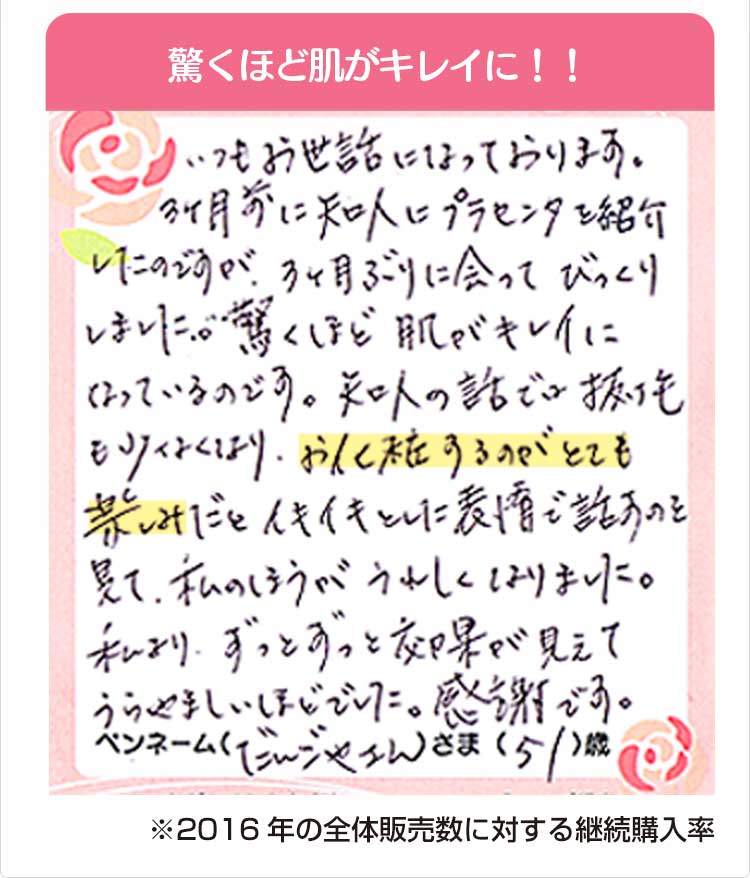 驚くほど肌がキレイに！！
いつもお世話になっております。
3ヶ月前に知人にプラセンタを紹介
したのですが、3ヶ月ぶりに会ってびっくり
しました。驚くほど肌がキレイに
なっているのです。知人の話では抜け毛
も少なくなり、お化粧するのがとても
楽しみだとイキイキとした表情で話すのを
見て、私のほうがうれしくなりました。
私より、ずっとずっと効果が見えて
うらやましいほどでした。感謝です。
ペンネーム( )さま (51)歳
※2016年の全体販売数に対する継続購入率